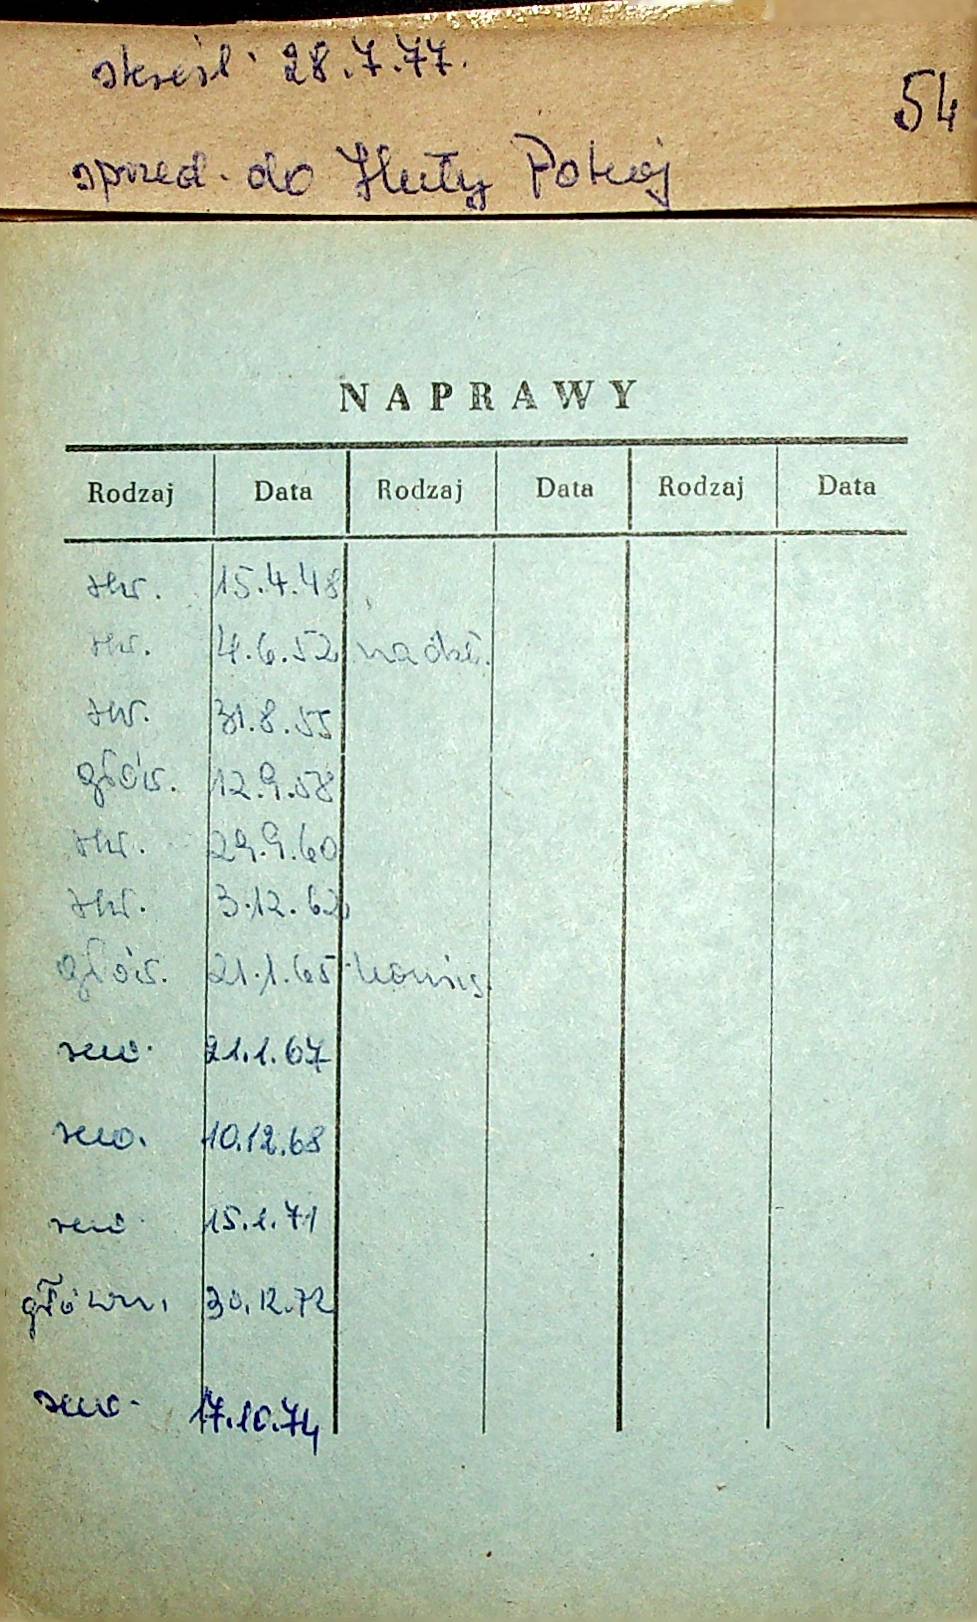 skreśl. 28.7.77.
54
sprzed. do Huty Pokój
NAPRAWY
Rodzaj Data Rodzaj Data Rodzaj Data
śr. 15.4.48
śr. 4.6.52
śr. 31.8.55
głów. 12.9.58
śr. 29.9.60
śr. 3.12.62
głów. 21.1.65
rew. 21.1.67
rew. 10.12.68
rew. 15.1.71
główn. 30.12.72
rew. 17.10.74